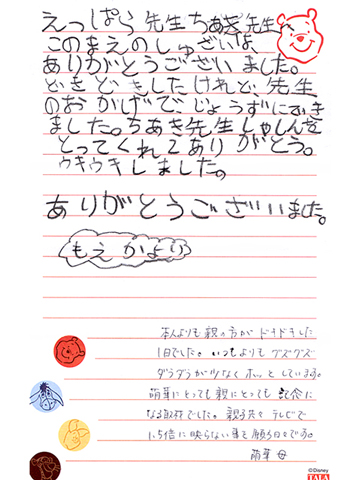 えっぱら先生ちあき先生へ
このまえのしゅざいは、
ありがとうございました。
どきどきしたけれど、先生
のおかげで、じょうずにできました。ちあき先生しゃしんを
とってくれてありがとう。
ウキウキしました。
ありがとうございました。
もえかより
本人よりも親の方がドキドキした
1日でした。いつもよりもグズグズ
ダラダラが少なくホッとしています。
萌華にとっても親にとっても記念に
なる取材でした。親子共々テレビで
1.5倍に映らない事を願う日々です。
萌華 母
©Disney